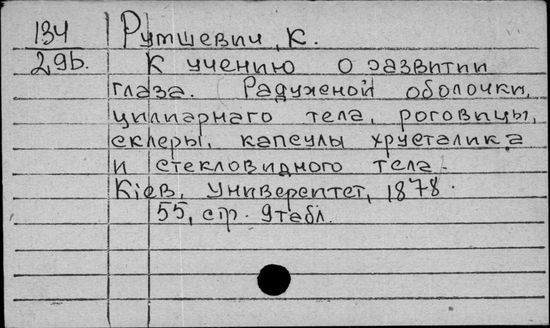 134 Румшевич, К.
29б. К учению о развитии
глаза. Радужной оболочки,
цилиарнаго тела, роговицы,
склеры, капсулы хрусталика
и стекловидного тела.
Кіев, Университет, 1878.
55, стр. 9 табл.